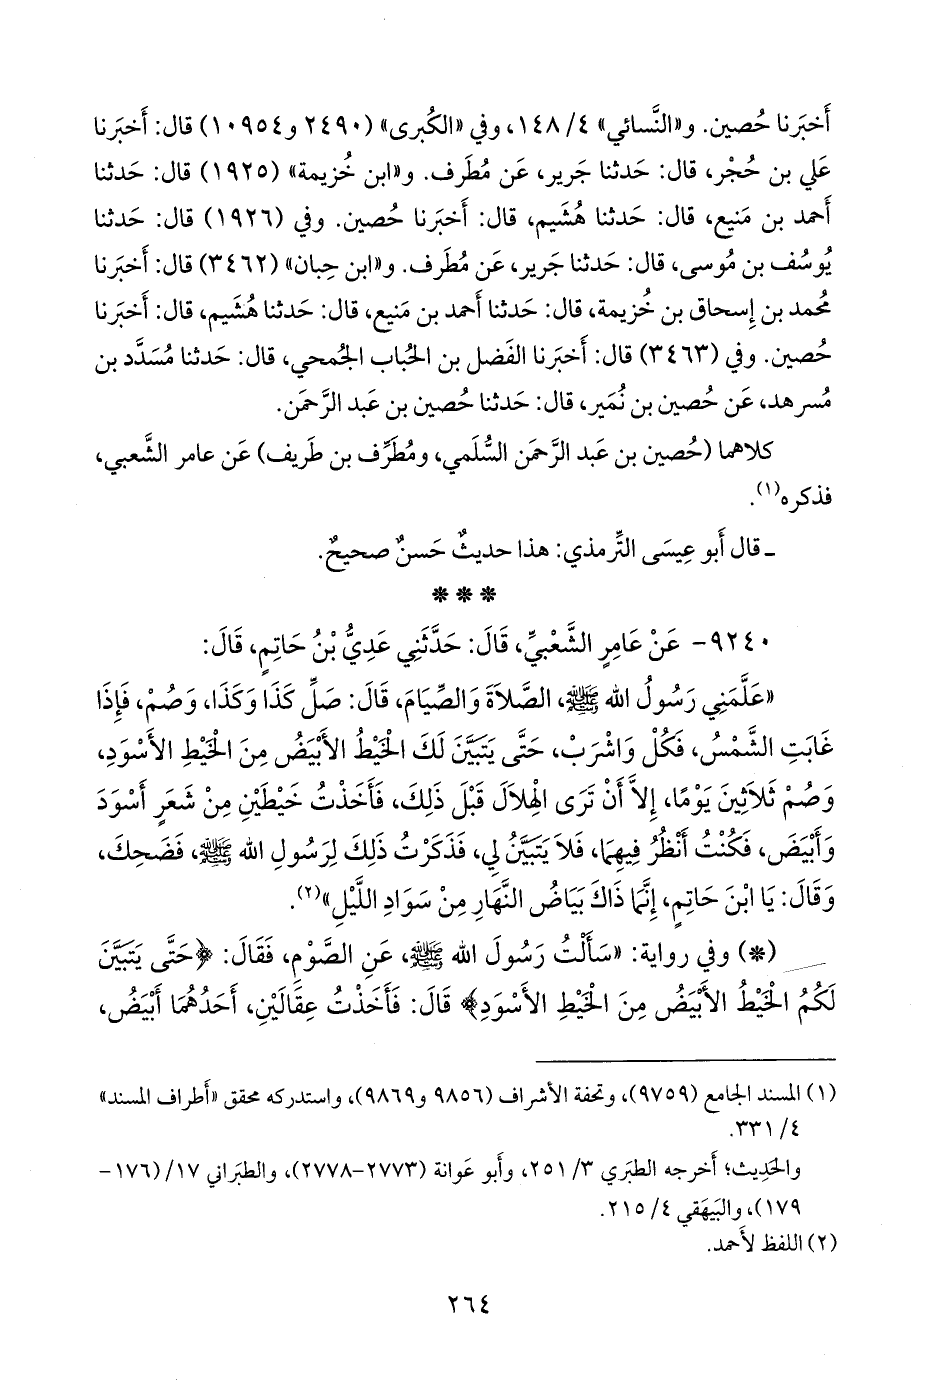 أَخبَرنا حُصين. و«النَّسائي» ٤/ ١٤٨، وفي «الكُبرى» (٢٤٩٠ و١٠٩٥٤) قال: أَخبَرنا
عَلي بن حُجْر، قال: حَدثنا جَرير، عَن مُطَرف. و«ابن خُزيمة» (١٩٢٥) قال: حَدثنا
أَحمد بن مَنيع، قال: حَدثنا هُشَيم، قال: أَخبَرنا حُصين. وفي (١٩٢٦) قال: حَدثنا
يُوسُف بن مُوسى، قال: حَدثنا جَرير، عَن مُطَرف. و«ابن حِبان» (٣٤٦٢) قال: أَخبَرنا
مُحمد بن إِسحاق بن خُزيمة، قال: حَدثنا أَحمد بن مَنيع، قال: حَدثنا هُشَيم، قال: أَخبَرنا
حُصين. وفي (٣٤٦٣) قال: أَخبَرنا الفَضل بن الحُباب الجُمحي، قال: حَدثنا مُسَدَّد بن
مُسرهد، عَن حُصين بن نُمَير، قال: حَدثنا حُصين بن عَبد الرَّحمَن.
كلاهما (حُصين بن عَبد الرَّحمَن السُّلَمي، ومُطَرِّف بن طَريف) عَن عامر الشَّعبي،
فذكره(١).
ـ قال أَبو عِيسَى التِّرمذي: هذا حديثٌ حَسنٌ صحيحٌ.
* * *
٩٢٤٠- عَنْ عَامِرٍ الشَّعْبِيِّ، قَالَ: حَدَّثَنِي عَدِيُّ بْنُ حَاتِمٍ، قَالَ:
«عَلَّمَنِي رَسُولُ الله ﷺ، الصَّلاَةَ وَالصِّيَامَ، قَالَ: صَلِّ كَذَا وَكَذَا، وَصُمْ، فَإِذَا
غَابَتِ الشَّمْسُ، فَكُلْ وَاشْرَبْ، حَتَّى يَتَبَيَّنَ لَكَ الخَيْطُ الأَبْيَضُ مِنَ الخَيْطِ الأَسْوَدِ،
وَصُمْ ثَلاَثِينَ يَوْمًا، إِلاَّ أَنْ تَرَى الهِلاَلَ قَبْلَ ذَلِكَ، فَأَخَذْتُ خَيْطَيْنِ مِنْ شَعَرٍ أَسْوَدَ
وَأَبْيَضَ، فَكُنْتُ أَنْظُرُ فِيهِمَا، فَلاَ يَتَبَيَّنُ لِي، فَذَكَرْتُ ذَلِكَ لِرَسُولِ الله ﷺ، فَضَحِكَ،
وَقَالَ: يَا ابْنَ حَاتِمٍ، إِنَّمَا ذَاكَ بَيَاضُ النَّهَارِ مِنْ سَوَادِ اللَّيْلِ»(٢).
(*) وفي رواية: «سَأَلْتُ رَسُولَ الله ﷺ، عَنِ الصَّوْمِ، فَقَالَ: ﴿حَتَّى يَتَبَيَّنَ
لَكُمُ الخَيْطُ الأَبْيَضُ مِنَ الخَيْطِ الأَسْوَدِ﴾ قَالَ: فَأَخَذْتُ عِقَالَيْنِ، أَحَدُهُمَا أَبْيَضُ،
(١) المسند الجامع (٩٧٥٩)، وتحفة الأَشراف (٩٨٥٦ و٩٨٦٩)، واستدركه محقق «أطراف المسند»
٤/ ٣٣١.
والحَدِيث؛ أَخرجه الطبَري ٣/ ٢٥١، وأَبو عَوانة (٢٧٧٣-٢٧٧٨)، والطبَراني ١٧/(١٧٦-
١٧٩)، والبَيهَقي ٤/ ٢١٥.
(٢) اللفظ لأَحمد.
٢٦٤